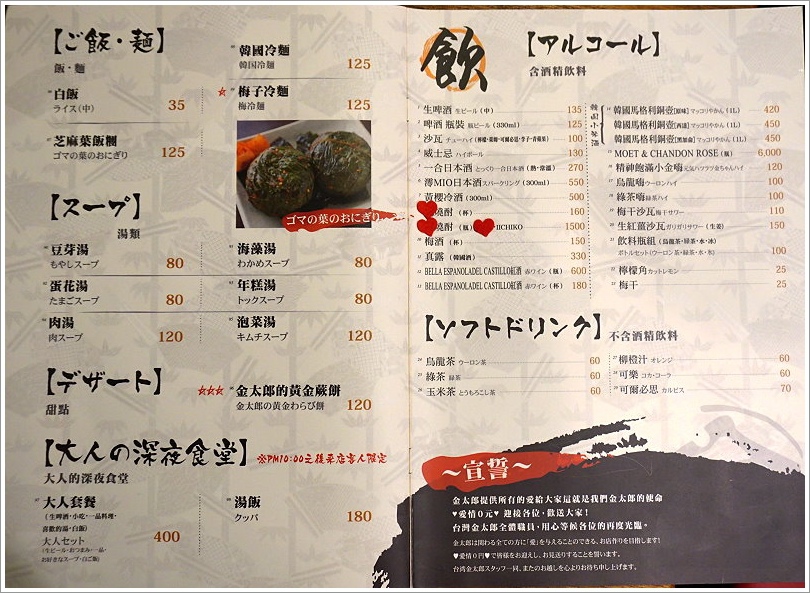 【ご飯・麺】
飯・麵
白飯
ライス(中) 35
芝麻葉飯糰
ゴマの葉のおにぎり 125
韓國冷麵
韓国冷麺 125
梅子冷麵
梅冷麺 125
ゴマの葉のおにぎり
【スープ】
湯類
豆芽湯
もやしスープ 80
蛋花湯
たまごスープ 80
肉湯
肉スープ 120
海藻湯
わかめスープ 80
年糕湯
トックスープ 80
泡菜湯
キムチスープ 120
【デザート】
甜點
金太郎的黃金蕨餅
金太郎の黄金わらび餅 120
【大人の深夜食堂】
※PM10:00之後来店客人限定
大人的深夜食堂
大人套餐
(生啤酒・小吃・一品料理・
喜歡的湯・白飯)
大人セット 400
(生ビール・おつまみ・一品・
お好きなスープ・白ご飯)
湯飯
クッパ 180
飲
【アルコール】
含酒精飲料
生啤酒 生ビール(中) 135
啤酒 瓶裝 瓶ビール(330ml) 125
沙瓦 チューハイ 130
威士忌 ハイボール 130
一合日本酒 とっくり一合日本酒(熱・常溫) 270
澪MIO日本酒 スパークリング(300ml) 550
黃櫻冷酒(300ml) 500
燒酎(杯) 160
燒酎(瓶) IICHIKO 1500
梅酒(杯) 150
真露(韓國酒) 330
BELLA ESPANOLADEL CASTILLO紅酒 赤ワイン(瓶) 600
BELLA ESPANOLADEL CASTILLO紅酒 赤ワイン(杯) 180
韓国小米酒
韓國馬格利銅壺[原味] マッコリやかん(1L) 420
韓國馬格利銅壺 マッコリやかん(1L) 450
韓國馬格利銅壺 マッコリやかん(1L) 450
MOET & CHANDON ROSE(瓶) 6,000
精神飽滿小金嗨 元気ハツラツ金ちゃんハイ 120
烏龍嗨 ウーロンハイ 100
綠茶嗨 緑茶ハイ 100
梅干沙瓦 梅干サワー 110
生紅薑沙瓦 ガリガリサワー(生姜) 120
飲料瓶組(烏龍茶・綠茶・水・冰)
ボトルセット(ウーロン茶・緑茶・水・氷) 100
檸檬角 カットレモン 25
梅干 25
【ソフトドリンク】
不含酒精飲料
烏龍茶 ウーロン茶 60
綠茶 緑茶 60
玉米茶 とうもろこし茶 60
柳橙汁 オレンジ 60
可樂 コカ・コーラ 60
可爾必思 カルピス 70
～宣誓～
金太郎提供所有的愛給大家這就是我們金太郎的使命
♥愛情0元♥ 迎接各位，歡送大家！
台灣金太郎全體職員，用心等候各位的再度光臨。
金太郎は関わる全ての方に「愛」を与えることのできる、お店作りを目指します！
♥愛情０円♥で皆様をお迎えし、お見送りすることを誓います。
台湾金太郎スタッフ一同、またのお越しを心よりお待ち申し上げます。